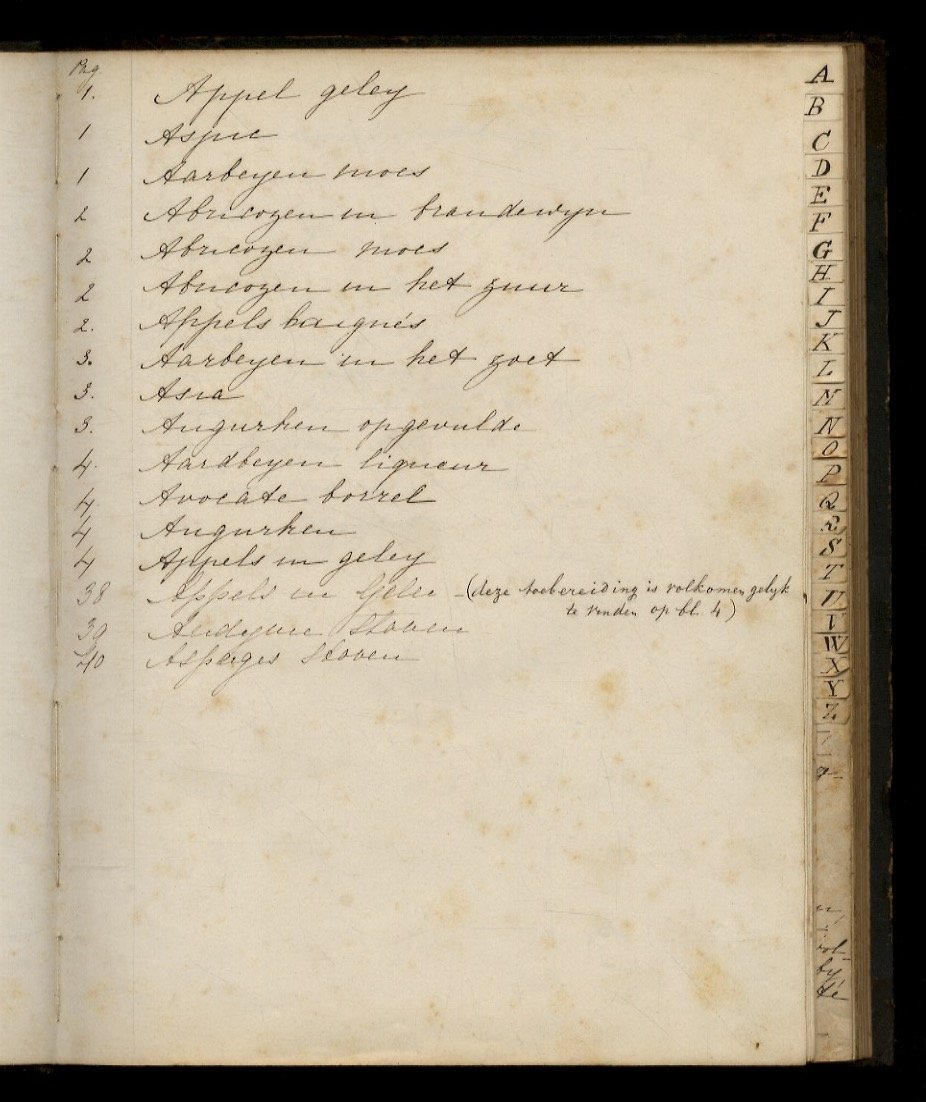 Pag.
1. Appel geley
1 Aspic
1 Aarbeyen moes
2 Abricozen in brandewyn
2 Abricozen moes
2 Abricozen in het zuur
2. Appels baignés
3. Aarbeyen in het zoet
3. Asia
3. Augurken opgevulde
4. Aardbeyen liqueur
4 Avocate borrel
4 Augurken
4 Appels in geley
38 Appels in Gelei - (deze toebereiding is volkomen gelyk
te vinden op bl. 4)
39 Andyvie stoven
40 Asperges stoven
A
B
C
D
E
F
G
H
I
J
K
L
M
N
O
P
Q
R
S
T
U
V
W
X
Y
Z